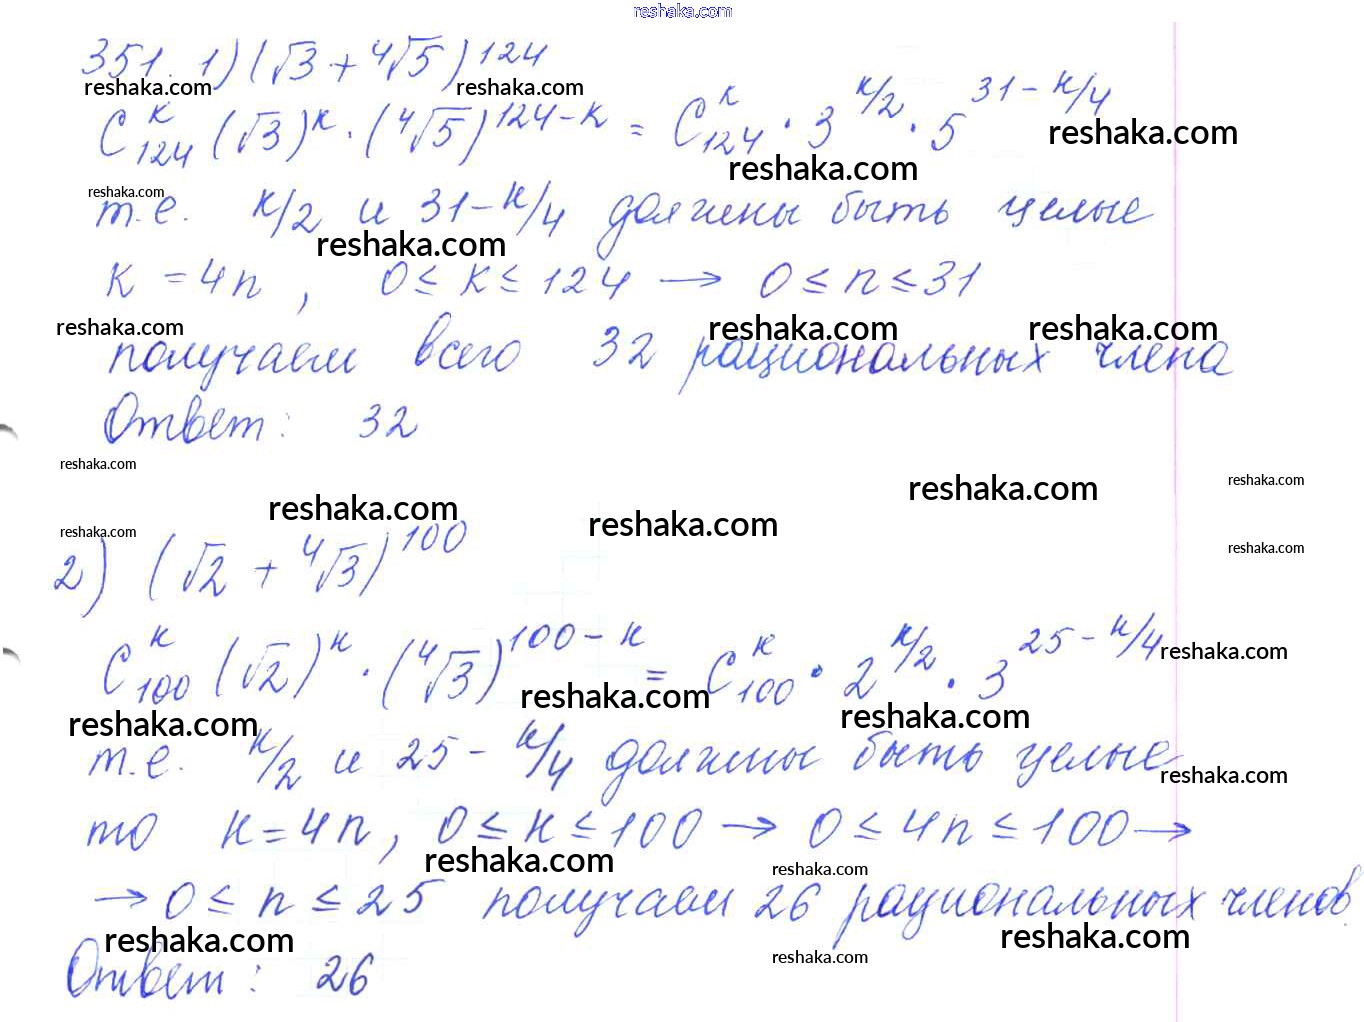 reshaka.com
351. 1) (√3 + ⁴√5)^124
reshaka.com reshaka.com
C_124^к (√3)^к · (⁴√5)^(124-к) = C_124^к · 3^(к/2) · 5^(31-к/4)
reshaka.com
reshaka.com
reshaka.com
т.е. к/2 и 31-к/4 должны быть целые
reshaka.com
к = 4n, 0 ≤ к ≤ 124 → 0 ≤ n ≤ 31
reshaka.com reshaka.com reshaka.com
получаем всего 32 рациональных члена
Ответ: 32
reshaka.com
reshaka.com reshaka.com
reshaka.com reshaka.com
reshaka.com reshaka.com
2) (√2 + ⁴√3)^100
C_100^к (√2)^к · (⁴√3)^(100-к) = C_100^к · 2^(к/2) · 3^(25-к/4)
reshaka.com
reshaka.com
reshaka.com reshaka.com
т.е. к/2 и 25-к/4 должны быть целые
reshaka.com
то к=4n, 0 ≤ к ≤ 100 → 0 ≤ 4n ≤ 100 →
reshaka.com reshaka.com
→ 0 ≤ n ≤ 25 получаем 26 рациональных членов.
reshaka.com reshaka.com
reshaka.com
Ответ: 26